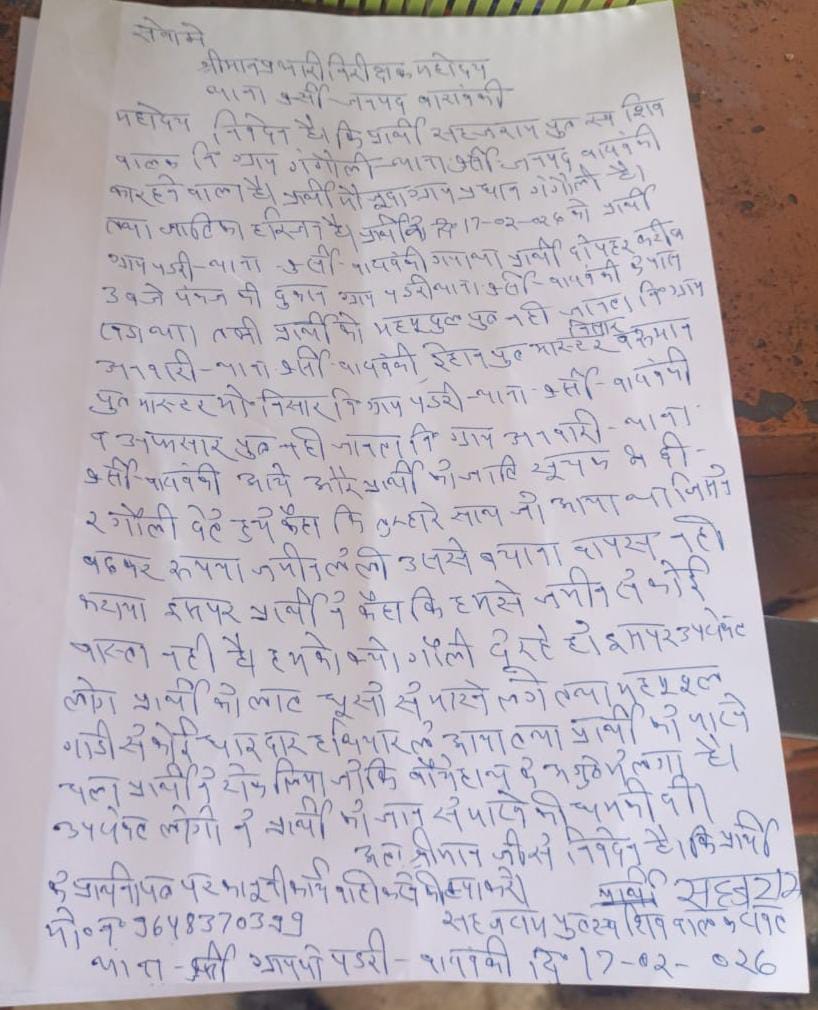 सेवामे
श्रीमान प्रभारी निरीक्षक महोदय
थाना कुर्सी जनपद बाराबंकी
महोदय निवेदन है। कि प्रार्थी सहजराम पुत्र स्व शिव
बालक नि ग्राम गंगौली थाना कुर्सी जनपद बाराबंकी
का रहने वाला है। प्रार्थी मौजूदा ग्राम प्रधान गंगौली है।
तथा जाति का हरिजन है। दि 17-02-026 को प्रार्थी
ग्राम पडरी थाना कुर्सी बाराबंकी गया था प्रार्थी दोपहर करीब
3 बजे पंकज की दुकान ग्राम पडरी थाना कुर्सी बाराबंकी के पास
तभी प्रार्थी को पुत्र नही जानता नि ग्राम
अनवारी थाना कुर्सी बाराबंकी पुत्र मास्टर निसार व
पुत्र मास्टर मो निसार नि ग्राम पडरी थाना कुर्सी बाराबंकी
व पुत्र नही जानता नि ग्राम अनवारी थाना
कुर्सी बाराबंकी आये और प्रार्थी को जाति सूचक भद्दी-
२ गाली देते हुये कहा कि तुम्हारे साथ जो आया था
रुपया उससे बयाना वापस नही
कराया इसपर प्रार्थी ने कहा कि हमसे जमीन से कोई
वास्ता नही है। हमको क्यो गाली दे रहे हो इसपर उपरोक्त
लोग प्रार्थी को लात घूसो से मारने लगे तथा
गाडी से कोई धारदार हथियार ले आया तथा प्रार्थी को मारने
चला प्रार्थी ने रोक लिया जोकि हाथ के अगुठे मे लगा है।
उपरोक्त लोगो ने प्रार्थी को जान से मारने की धमकी दी।
अतः श्रीमान जी से निवेदन है। कि प्रार्थी
के प्रार्थना पत्र पर कानूनी कार्यवाही करने की कृपा करे। प्रार्थी सहजराम
मो० न० 9648370399 सहजराम पुत्र स्व शिव बालक
थाना कुर्सी पडरी बाराबंकी दि 17-02-026